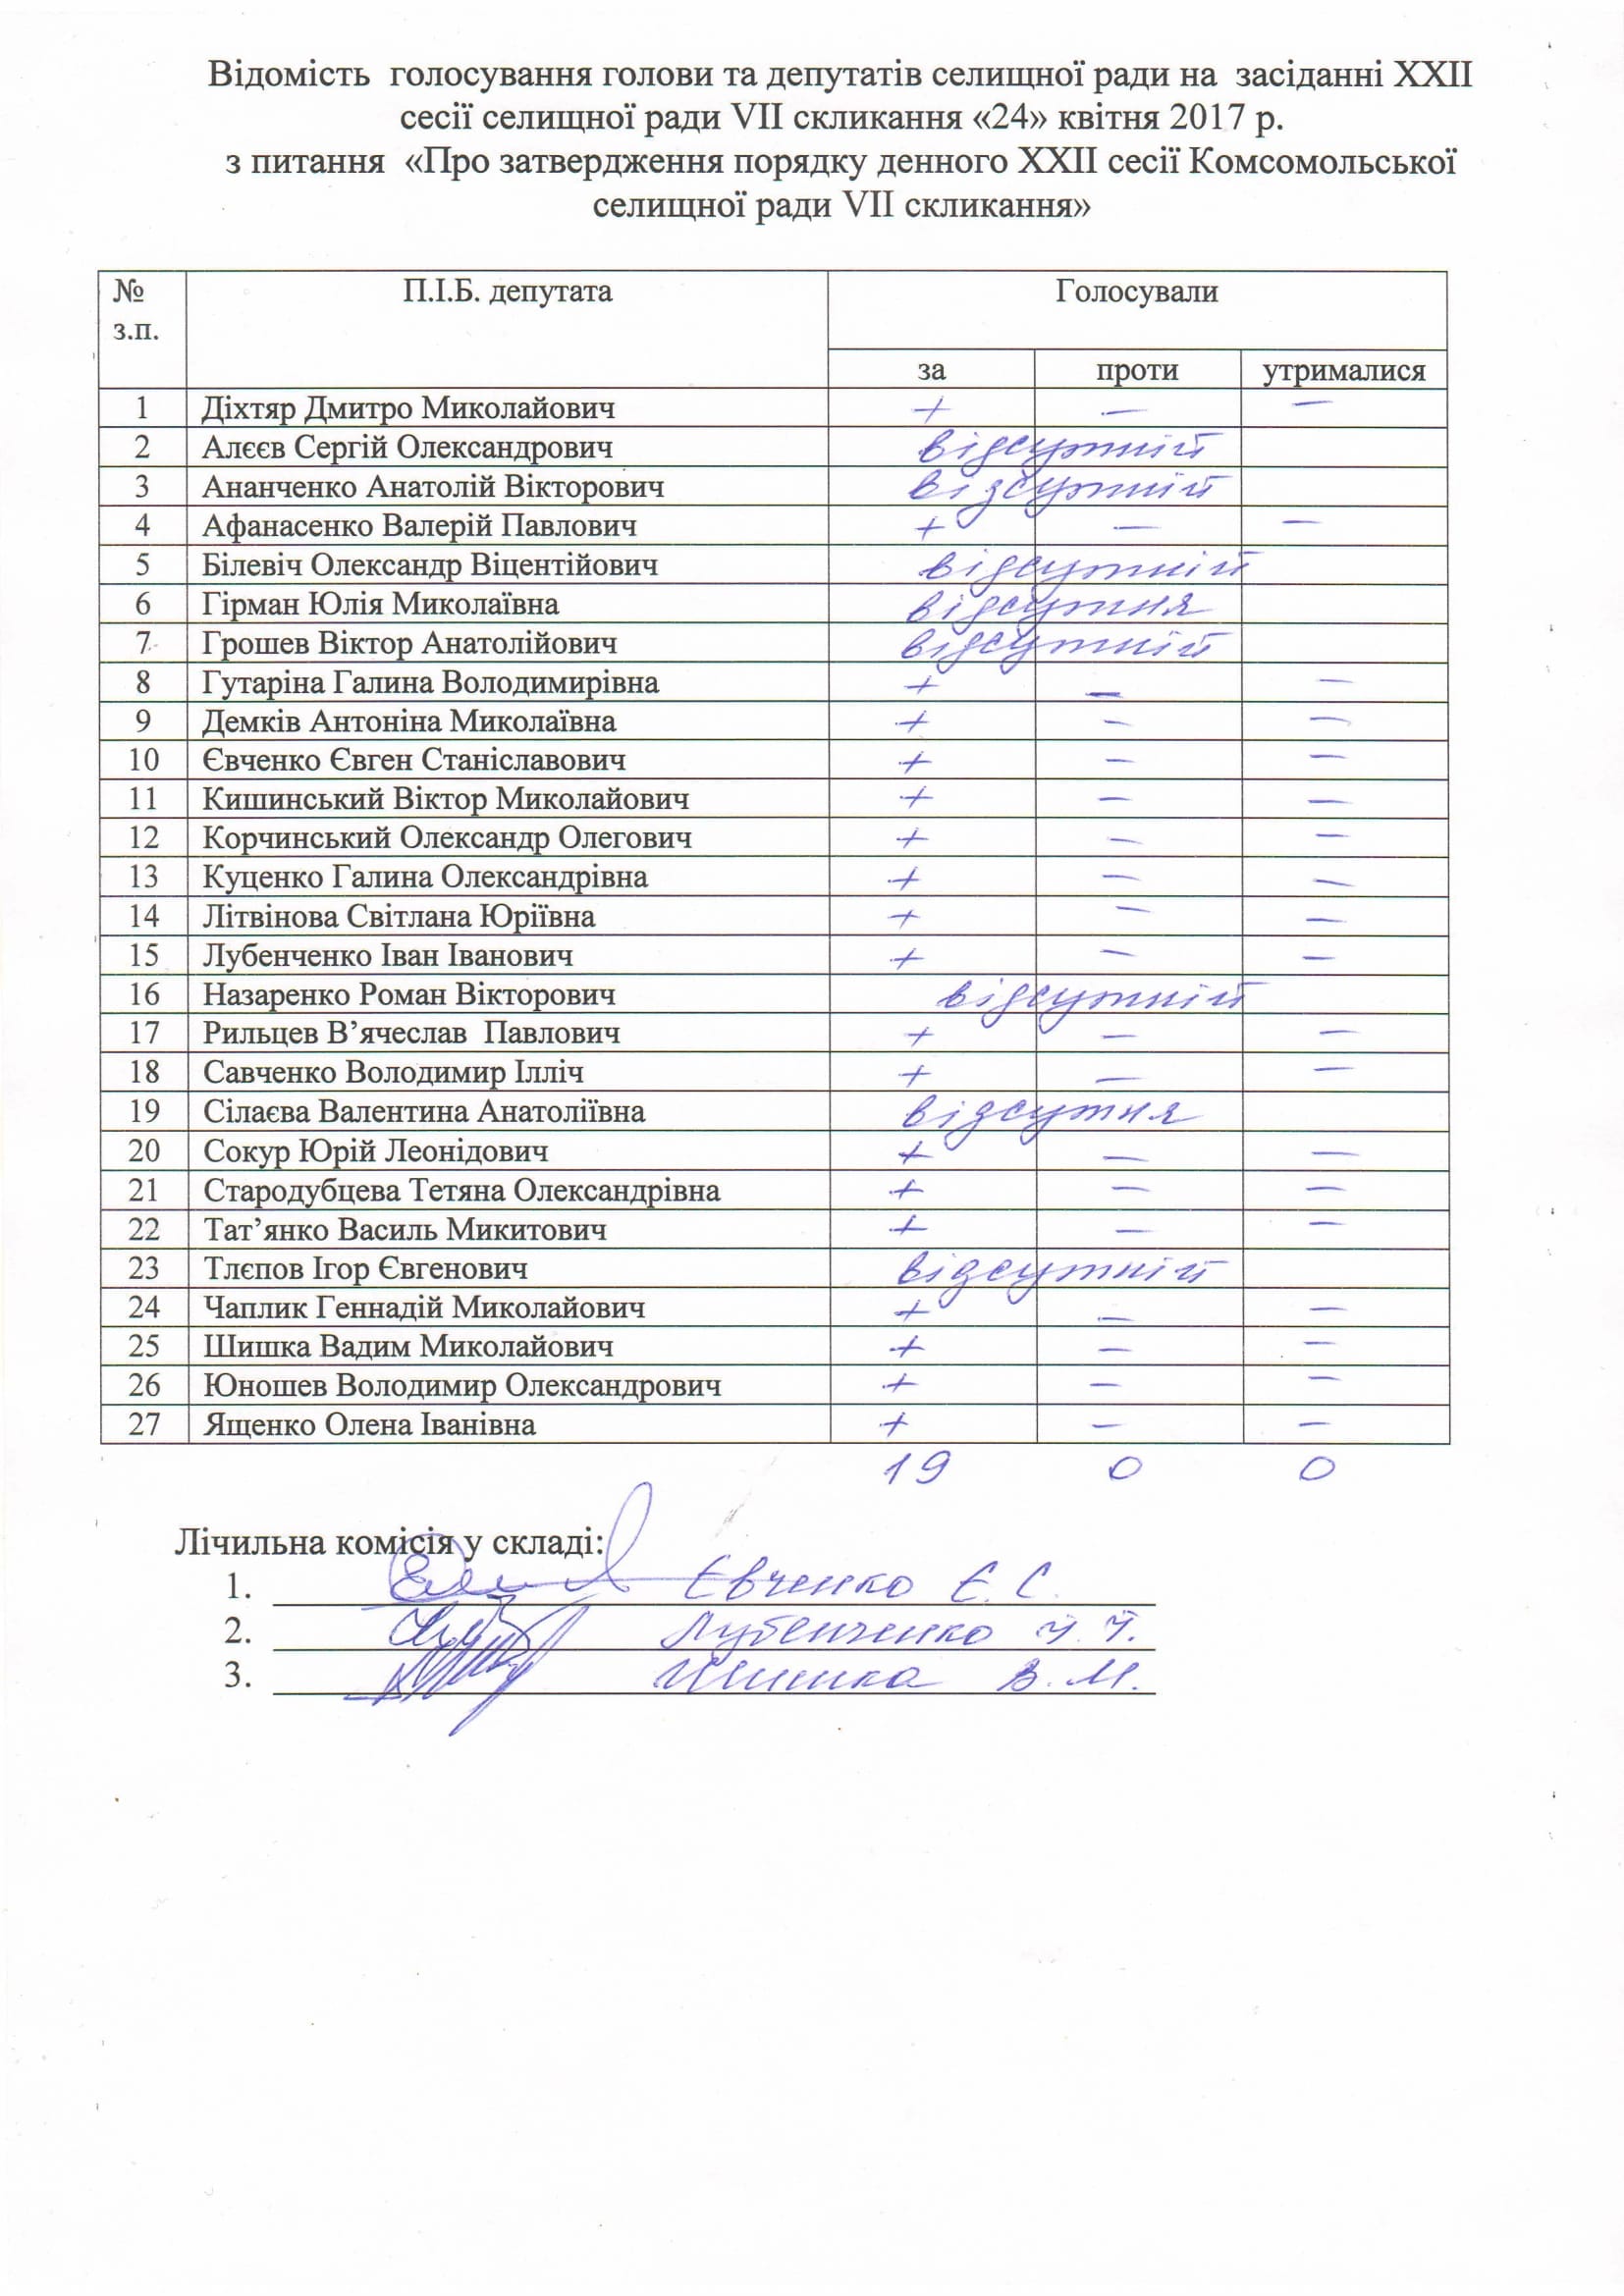 Відомість голосування голови та депутатів селищної ради на засіданні XXII
сесії селищної ради VII скликання «24» квітня 2017 р.
з питання «Про затвердження порядку денного XXII сесії Комсомольської
селищної ради VII скликання»
№ з.п. П.І.Б. депутата Голосували
за проти утрималися
1 Діхтяр Дмитро Миколайович + — —
2 Алєєв Сергій Олександрович відсутній
3 Ананченко Анатолій Вікторович відсутній
4 Афанасенко Валерій Павлович + — —
5 Білевіч Олександр Віцентійович відсутній
6 Гірман Юлія Миколаївна відсутня
7 Грошев Віктор Анатолійович відсутній
8 Гутаріна Галина Володимирівна + — —
9 Демків Антоніна Миколаївна + — —
10 Євченко Євген Станіславович + — —
11 Кишинський Віктор Миколайович + — —
12 Корчинський Олександр Олегович + — —
13 Куценко Галина Олександрівна + — —
14 Літвінова Світлана Юріївна + — —
15 Лубенченко Іван Іванович + — —
16 Назаренко Роман Вікторович відсутній
17 Рильцев В’ячеслав Павлович + — —
18 Савченко Володимир Ілліч + — —
19 Сілаєва Валентина Анатоліївна відсутня
20 Сокур Юрій Леонідович + — —
21 Стародубцева Тетяна Олександрівна + — —
22 Тат’янко Василь Микитович + — —
23 Тлєпов Ігор Євгенович відсутній
24 Чаплик Геннадій Миколайович + — —
25 Шишка Вадим Миколайович + — —
26 Юношев Володимир Олександрович + — —
27 Ященко Олена Іванівна + — —
19 0 0
Лічильна комісія у складі:
1. Євченко Є. С.
2. Лубенченко І. І.
3. Шишка В. М.